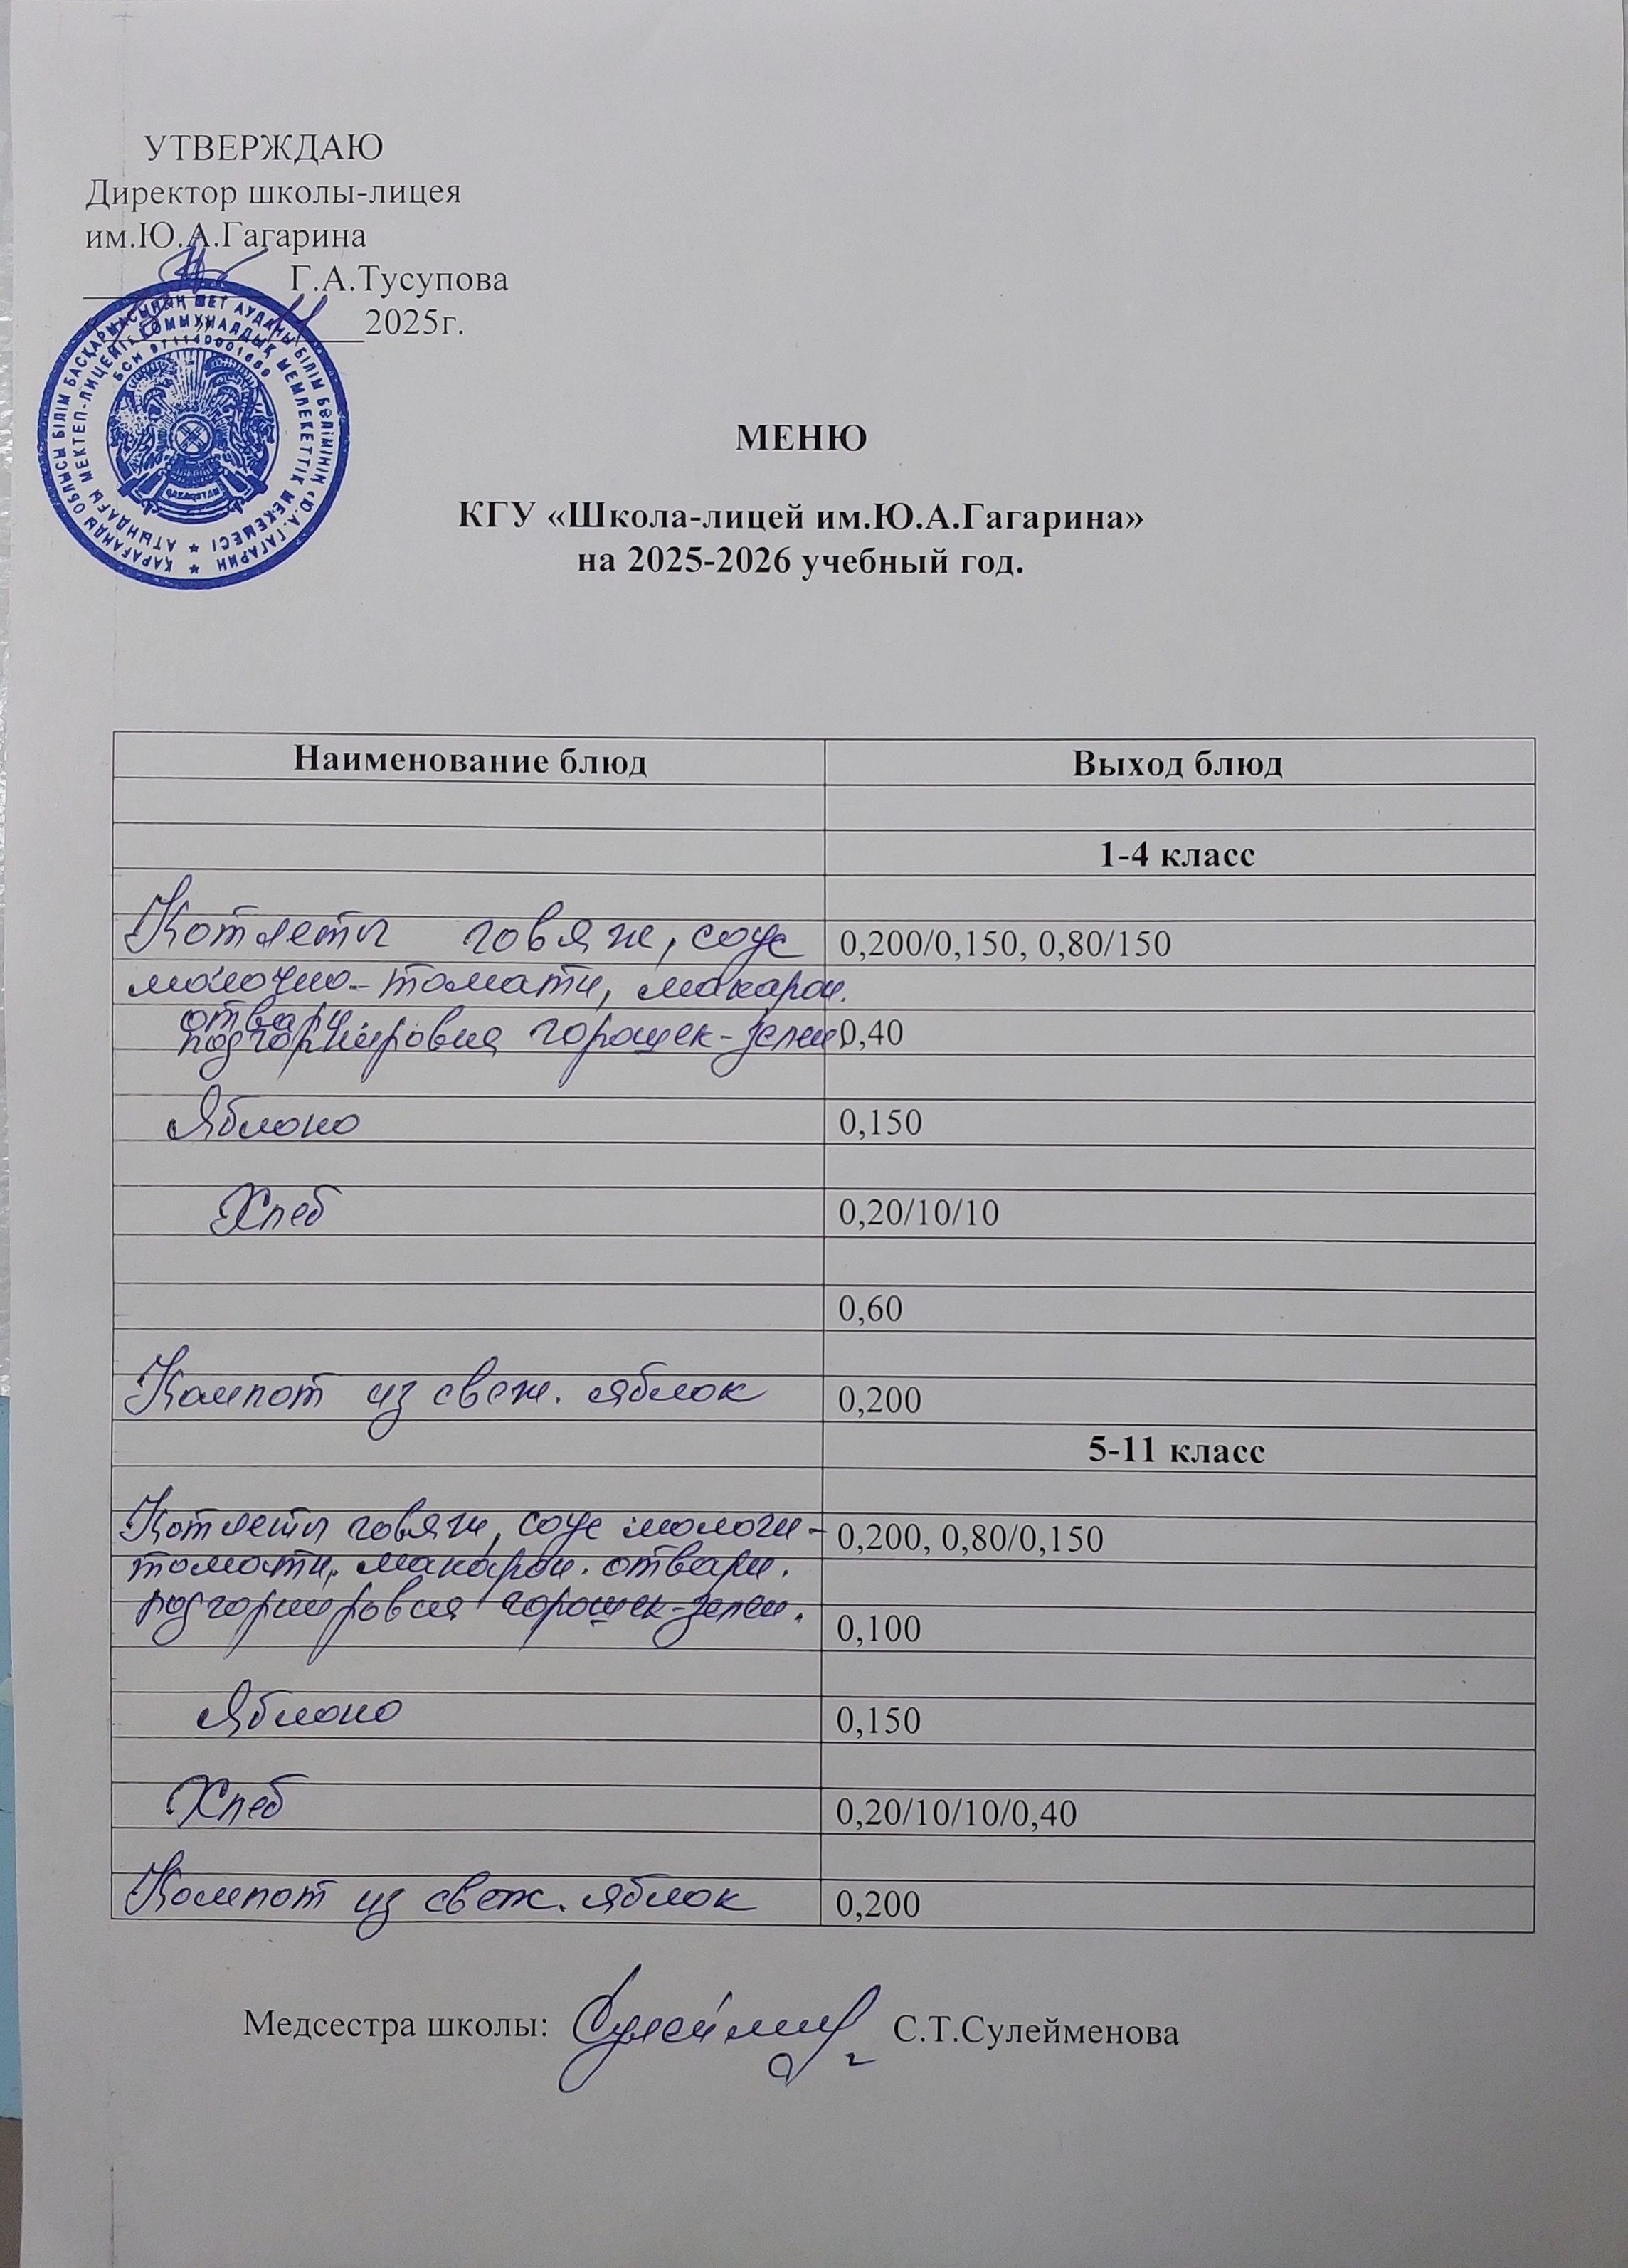 УТВЕРЖДАЮ
Директор школы-лицея
им.Ю.А.Гагарина
Г.А.Тусупова
2025г.
ҚАРАҒАНДЫ ОБЛЫСЫ БІЛІМ БАСҚАРМАСЫНЫҢ ШЕТ АУДАНЫ БІЛІМ БӨЛІМІНІҢ «Ю.А.ГАГАРИН
АТЫНДАҒЫ МЕКТЕП-ЛИЦЕЙІ» КОММУНАЛДЫҚ МЕМЛЕКЕТТІК МЕКЕМЕСІ
БСН
QAZAQSTAN
МЕНЮ
КГУ «Школа-лицей им.Ю.А.Гагарина»
на 2025-2026 учебный год.
Наименование блюд Выход блюд
1-4 класс
Котлеты говяж, соус 0,200/0,150, 0,80/150
молочно-томатн, макарон.
отварн.
подгарнировка горошек-зелен. 0,40
Яблоко 0,150
Хлеб 0,20/10/10
0,60
Компот из свеж. яблок 0,200
5-11 класс
Котлеты говяж, соус молочн- 0,200, 0,80/0,150
томатн, макарон. отварн.
подгарнировка горошек-зелен. 0,100
Яблоко 0,150
Хлеб 0,20/10/10/0,40
Компот из свеж. яблок 0,200
Медсестра школы: С.Т.Сулейменова